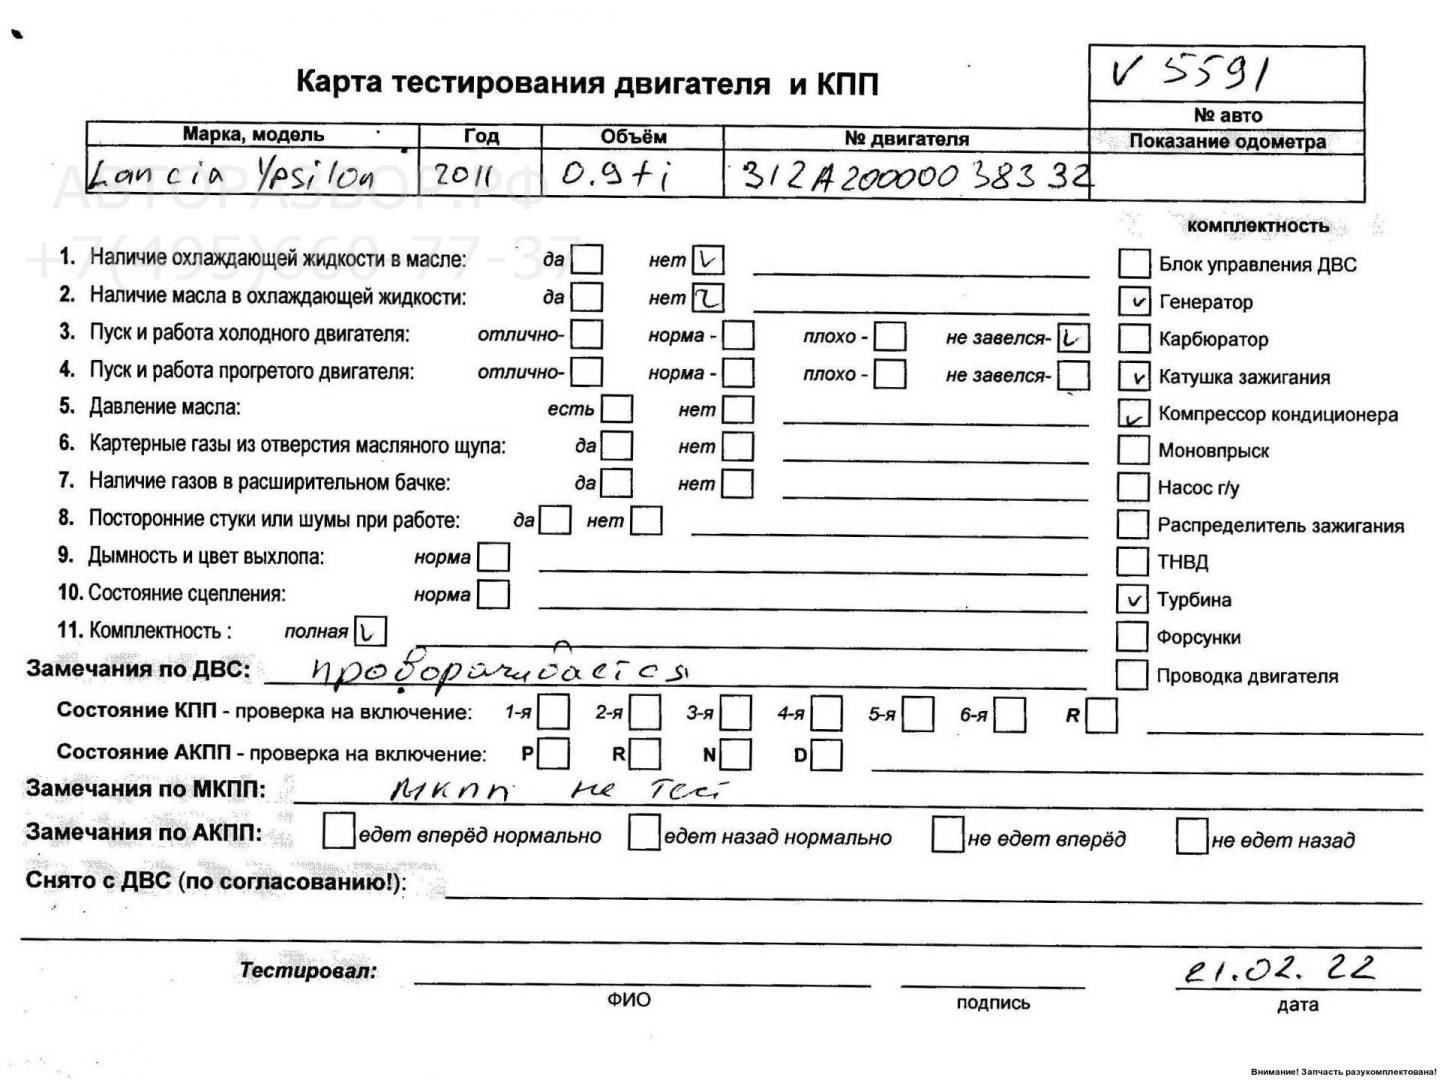 Карта тестирования двигателя и КПП
V 5591
№ авто
Марка, модель Год Объём № двигателя Показание одометра
Lancia Ypsilon 2011 0.9ti 312A20000038332
АВТОРАЗБОР.РФ
+7(495)660-77-37
комплектность
1. Наличие охлаждающей жидкости в масле: да нет Блок управления ДВС
2. Наличие масла в охлаждающей жидкости: да нет Генератор
3. Пуск и работа холодного двигателя: отлично- норма - плохо - не завелся- Карбюратор
4. Пуск и работа прогретого двигателя: отлично- норма - плохо - не завелся- Катушка зажигания
5. Давление масла: есть нет Компрессор кондиционера
6. Картерные газы из отверстия масляного щупа: да нет Моновпрыск
7. Наличие газов в расширительном бачке: да нет Насос г/у
8. Посторонние стуки или шумы при работе: да нет Распределитель зажигания
9. Дымность и цвет выхлопа: норма ТНВД
10. Состояние сцепления: норма Турбина
11. Комплектность : полная Форсунки
Замечания по ДВС: проворачивается Проводка двигателя
Состояние КПП - проверка на включение: 1-я 2-я 3-я 4-я 5-я 6-я R
Состояние АКПП - проверка на включение: P R N D
Замечания по МКПП: МКПП не тест
Замечания по АКПП: едет вперёд нормально едет назад нормально не едет вперёд не едет назад
Снято с ДВС (по согласованию!):
Тестировал: 21.02.22
ФИО подпись дата
Внимание! Запчасть разукомплектована!